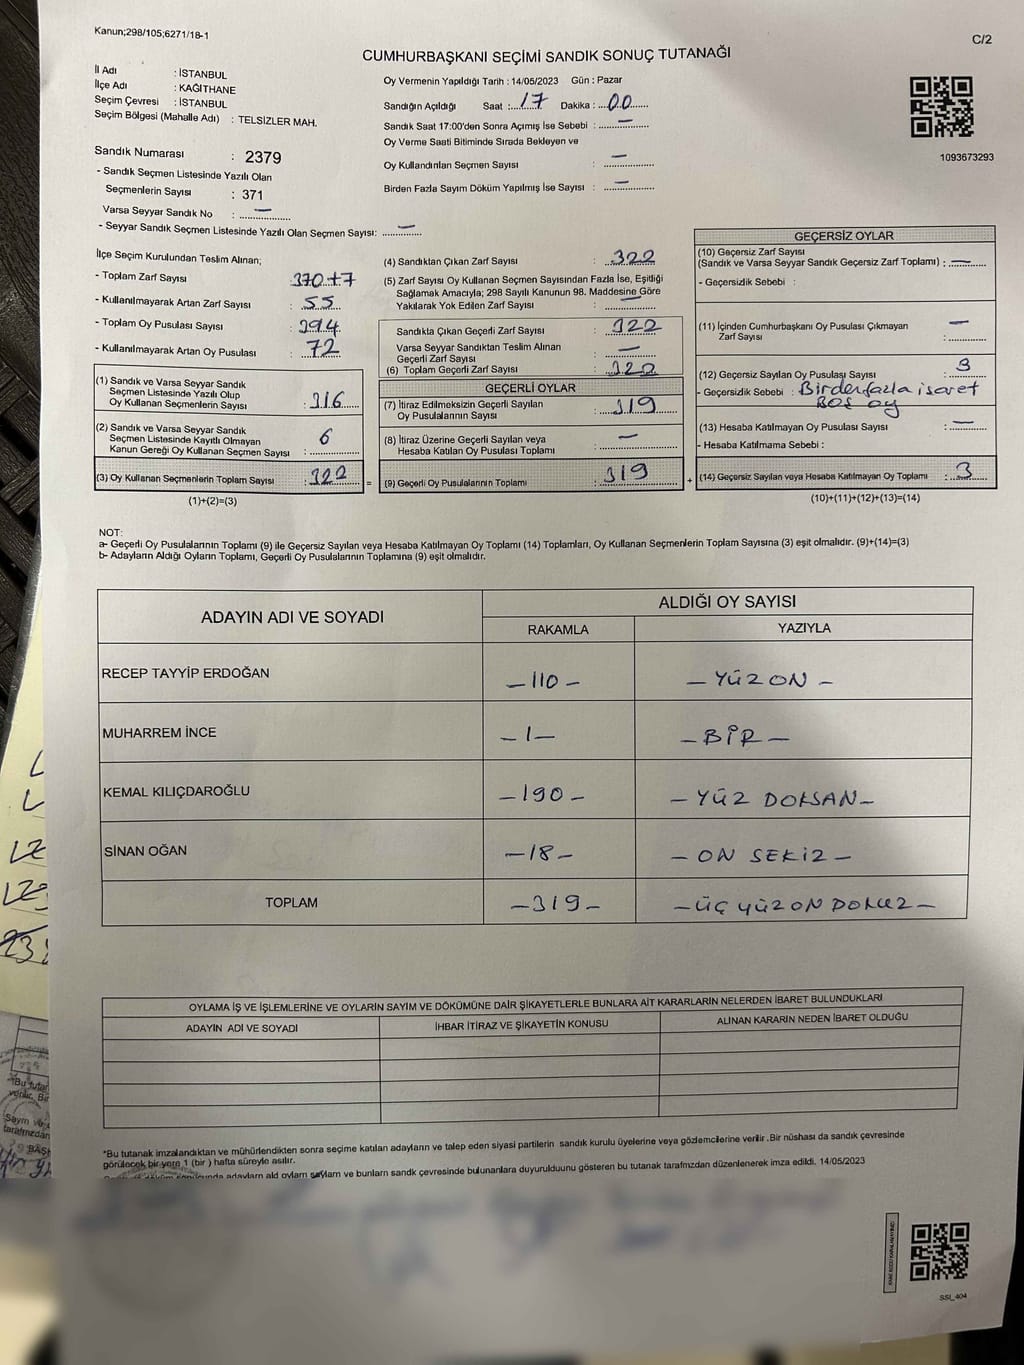 Kanun;298/105;6271/18-1
C/2
CUMHURBAŞKANI SEÇİMİ SANDIK SONUÇ TUTANAĞI
İl Adı : İSTANBUL
İlçe Adı : KAĞITHANE
Seçim Çevresi : İSTANBUL
Seçim Bölgesi (Mahalle Adı) : TELSİZLER MAH.
Sandık Numarası : 2379
- Sandık Seçmen Listesinde Yazılı Olan
Seçmenlerin Sayısı : 371
Varsa Seyyar Sandık No : —
- Seyyar Sandık Seçmen Listesinde Yazılı Olan Seçmen Sayısı: —
Oy Vermenin Yapıldığı Tarih : 14/05/2023 Gün : Pazar
Sandığın Açıldığı Saat : 17 Dakika : 00
Sandık Saat 17:00'den Sonra Açımış İse Sebebi : —
Oy Verme Saati Bitiminde Sırada Bekleyen ve
Oy Kullandırılan Seçmen Sayısı : —
Birden Fazla Sayım Döküm Yapılmış İse Sayısı : —
1093673293
İlçe Seçim Kurulundan Teslim Alınan;
- Toplam Zarf Sayısı : 370+7
- Kullanılmayarak Artan Zarf Sayısı : 55
- Toplam Oy Pusulası Sayısı : 394
- Kullanılmayarak Artan Oy Pusulası : 72
(1) Sandık ve Varsa Seyyar Sandık
Seçmen Listesinde Yazılı Olup
Oy Kullanan Seçmenlerin Sayısı : 316
(2) Sandık ve Varsa Seyyar Sandık
Seçmen Listesinde Kayıtlı Olmayan
Kanun Gereği Oy Kullanan Seçmen Sayısı : 6
(3) Oy Kullanan Seçmenlerin Toplam Sayısı : 322
(1)+(2)=(3)
(4) Sandıktan Çıkan Zarf Sayısı : 322
(5) Zarf Sayısı Oy Kullanan Seçmen Sayısından Fazla İse, Eşitliği
Sağlamak Amacıyla; 298 Sayılı Kanunun 98. Maddesine Göre
Yakılarak Yok Edilen Zarf Sayısı : —
Sandıkta Çıkan Geçerli Zarf Sayısı : 322
Varsa Seyyar Sandıktan Teslim Alınan
Geçerli Zarf Sayısı : —
(6) Toplam Geçerli Zarf Sayısı : 322
GEÇERLİ OYLAR
(7) İtiraz Edilmeksizin Geçerli Sayılan
Oy Pusulalarının Sayısı : 319
(8) İtiraz Üzerine Geçerli Sayılan veya
Hesaba Katılan Oy Pusulası Toplamı : —
= (9) Geçerli Oy Pusulalarının Toplamı : 319
GEÇERSİZ OYLAR
(10) Geçersiz Zarf Sayısı
(Sandık ve Varsa Seyyar Sandık Geçersiz Zarf Toplamı) : —
- Geçersizlik Sebebi :
(11) İçinden Cumhurbaşkanı Oy Pusulası Çıkmayan
Zarf Sayısı : —
(12) Geçersiz Sayılan Oy Pusulası Sayısı : 3
- Geçersizlik Sebebi : Birden fazla isaret
Boş oy
(13) Hesaba Katılmayan Oy Pusulası Sayısı : —
- Hesaba Katılmama Sebebi :
+ (14) Geçersiz Sayılan veya Hesaba Katılmayan Oy Toplamı : 3
(10)+(11)+(12)+(13)=(14)
NOT:
a- Geçerli Oy Pusulalarının Toplamı (9) ile Geçersiz Sayılan veya Hesaba Katılmayan Oy Toplamı (14) Toplamları, Oy Kullanan Seçmenlerin Toplam Sayısına (3) eşit olmalıdır. (9)+(14)=(3)
b- Adayların Aldığı Oyların Toplamı, Geçerli Oy Pusulalarının Toplamına (9) eşit olmalıdır.
ADAYIN ADI VE SOYADI
ALDIĞI OY SAYISI
RAKAMLA YAZIYLA
RECEP TAYYİP ERDOĞAN –110– –YÜZON–
MUHARREM İNCE –1– –BİR–
KEMAL KILIÇDAROĞLU –190– –YÜZ DOKSAN–
SİNAN OĞAN –18– –ON SEKİZ–
TOPLAM –319– –ÜÇ YÜZ ON DOKUZ–
OYLAMA İŞ VE İŞLEMLERİNE VE OYLARIN SAYIM VE DÖKÜMÜNE DAİR ŞİKAYETLERLE BUNLARA AİT KARARLARIN NELERDEN İBARET BULUNDUKLARI
ADAYIN ADI VE SOYADI İHBAR İTİRAZ VE ŞİKAYETİN KONUSU ALINAN KARARIN NEDEN İBARET OLDUĞU
*Bu tutanak imzalandıktan ve mühürlendikten sonra seçime katılan adayların ve talep eden siyasi partilerin sandık kurulu üyelerine veya gözlemcilerine verilir .Bir nüshası da sandık çevresinde
görülecek bir yere 1 (bir ) hafta süreyle asılır.
adayların ald oyların sayıların ve bunların sandk çevresinde bulunanlara duyurulduunu gösteren bu tutanak tarafmzdan düzenlenerek imza edildi. 14/05/2023
SSI_404